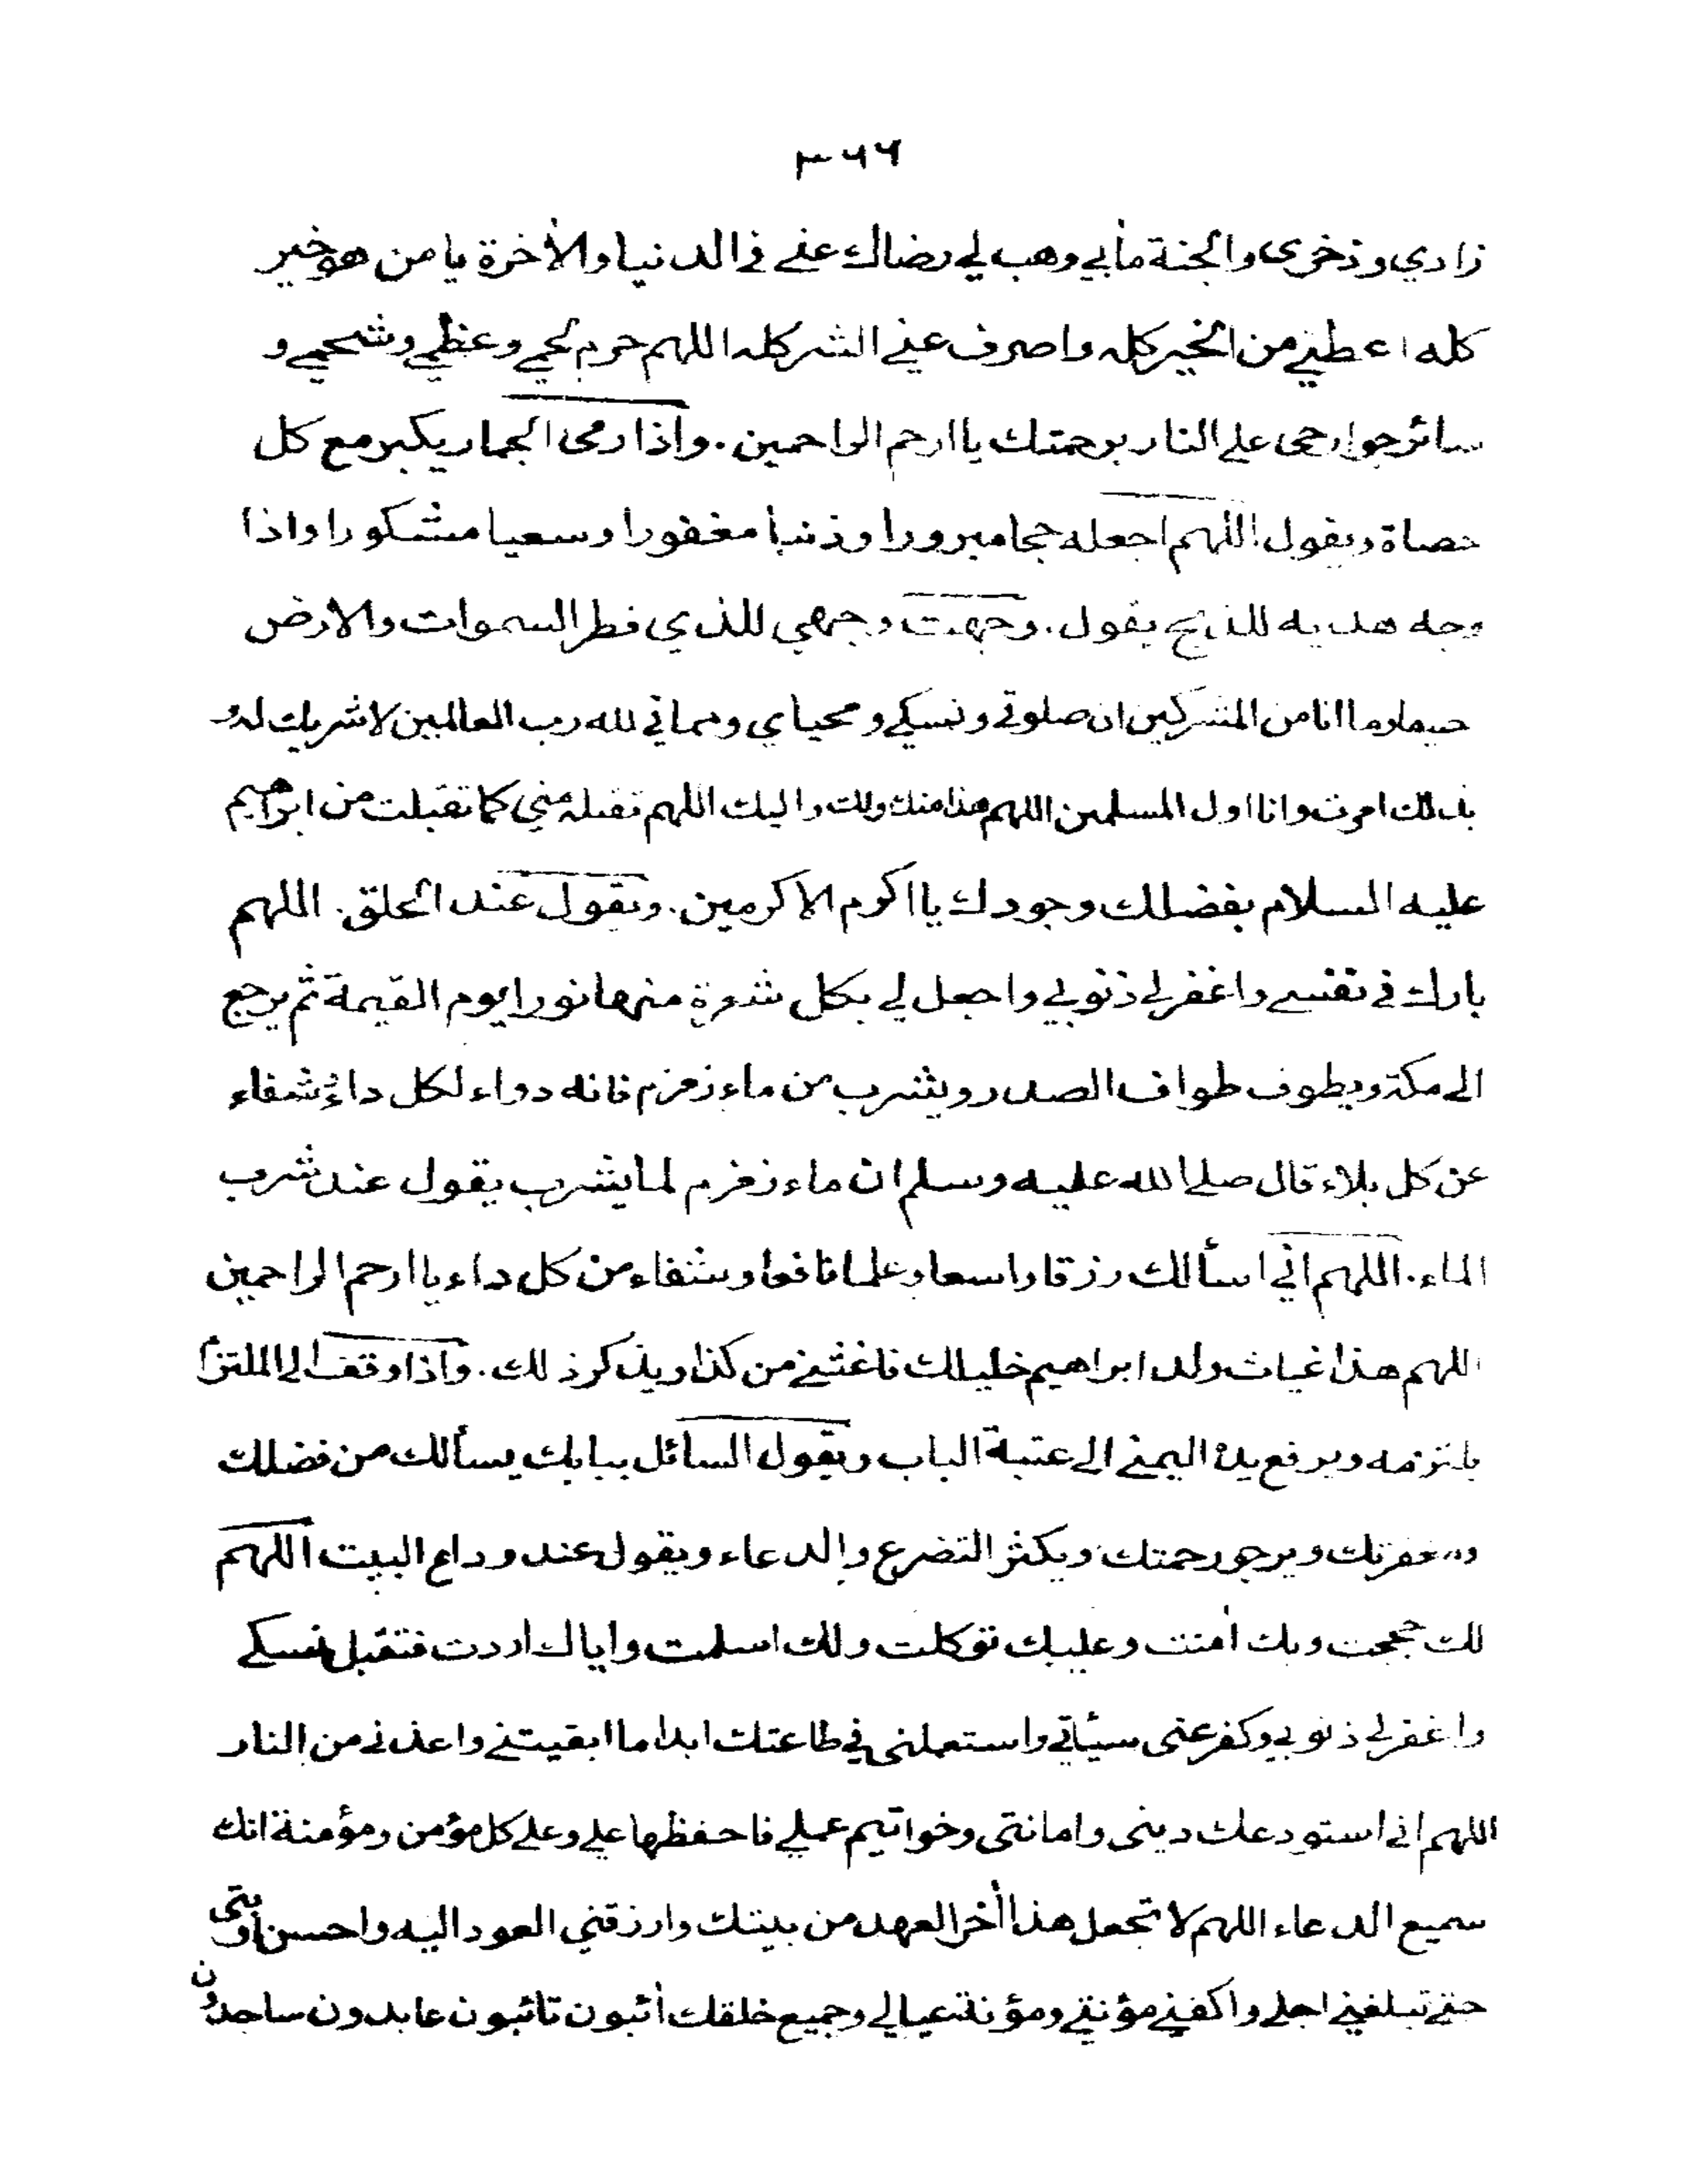 ٣٦٦
زادي وذخرى والجنة مأبي وهب لي رضاك عني في الدنيا والأخرة يا من هو خير
كله اعطني من الخير كله واصرف عني الشر كله اللهم حرم لحمي وعظمي وشحمي و
سائر جوارحى على النار برحمتك يا ارحم الراحمين . واذا رمى الجمار يكبر مع كل
حصاة ويقول اللهم اجعله حجا مبرورا وذنبا مغفورا وسعيا مشكورا واذا
وجه هديه للذبح يقول . وجهت وجهي للذي فطر السموات والارض
حنيفا وما انا من المشركين ان صلوتي ونسكي ومحياي ومماتي لله رب العالمين لا شريك له و
بذلك امرت وانا اول المسلمين اللهم هذا منك ولك واليك اللهم تقبله مني كما تقبلت من ابراهيم
عليه السلام بفضلك وجودك يا اكرم الاكرمين . ويقول عند الحلق . اللهم
بارك في نفسي واغفر لي ذنوبي واجعل لي بكل شعرة منها نورا يوم القيمة ثم يرجع
الى مكة ويطوف طواف الصدر ويشرب من ماء زمزم فانه دواء لكل داء وشفاء
عن كل بلاء قال صلى الله عليه وسلم ان ماء زمزم لما يشرب يقول عند شرب
الماء . اللهم اني اسألك رزقا واسعا وعلما نافعا وشفاء من كل داء يا ارحم الراحمين
اللهم هذا غياث ولد ابراهيم خليلك فاغثني من كذا ويذكر ذلك . واذا وقف الى الملتزم
يلتزمه ويرفع يده اليمنى الى عتبة الباب ويقول السائل ببابك يسألك من فضلك
ومغفرتك ويرجو رحمتك ويكثر التضرع والدعاء ويقول عند وداع البيت اللهم
لك حججت وبك أمنت وعليك توكلت ولك اسلمت واياك اردت فتقبل نسكي
واغفر لي ذنوبي وكفر عنى سيأتي واستعملنى في طاعتك ابدا ما ابقيتني واعذني من النار
اللهم اني استودعك دينى وامانتى وخواتيم عملي فاحفظها علي وعلى كل مؤمن ومؤمنة انك
سميع الدعاء اللهم لا تجعل هذا أخر العهد من بيتك وارزقني العود اليه واحسن اوبتى
حتى تبلغني اجلي واكفني مؤنتي ومؤنة عيالي وجميع خلقك أئبون تائبون عابدون ساجدون